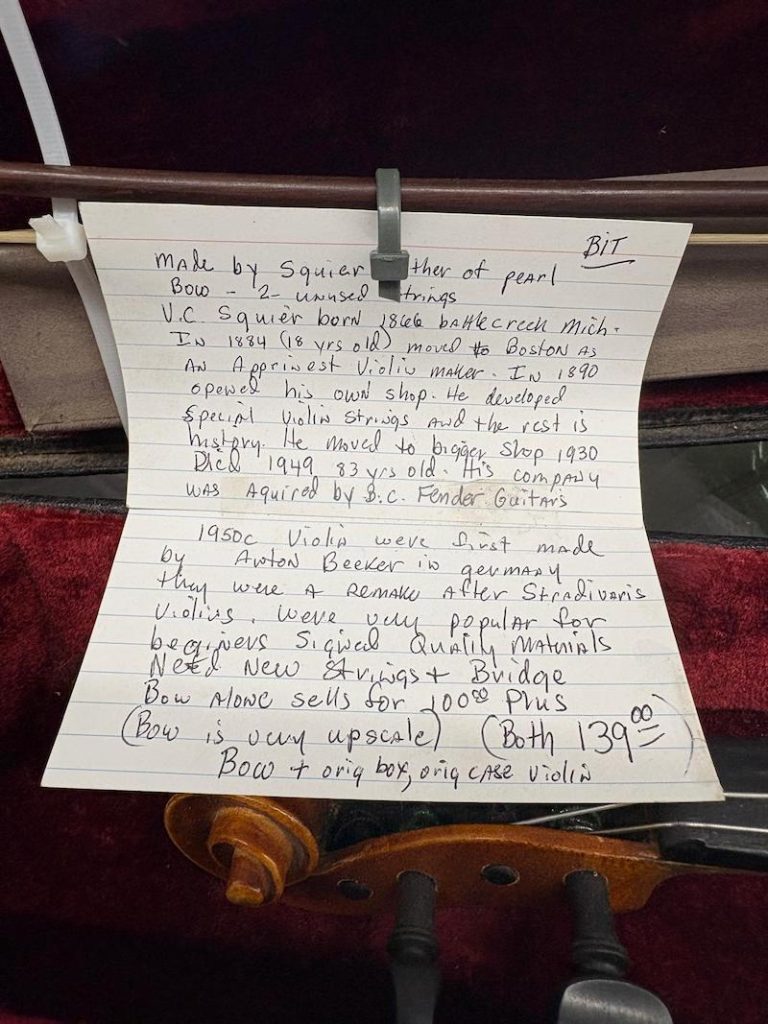 BiT
Made by Squier ther of pearl
Bow - 2 - unused trings
V.C. Squier born 1866 battlecreek Mich.
In 1884 (18 yrs old) moved to Boston As
An Apprinest Violin maker. In 1890
opened his own shop. He developed
special Violin Strings and the rest is
history. He moved to bigger shop 1930
Died 1949 83 yrs old. His company
was Aquired by B.C. Fender Guitars
1950c Violin were first made
by Anton Beeker in germany
they were A Remake After Stradivaris
Violins. Were very popular for
beginers Signed Quality Materials
Need New Strings + Bridge
Bow Alone sells for 100⁰⁰ Plus
(Bow is very upscale) (Both 139⁰⁰)
Bow + orig box, orig case Violin